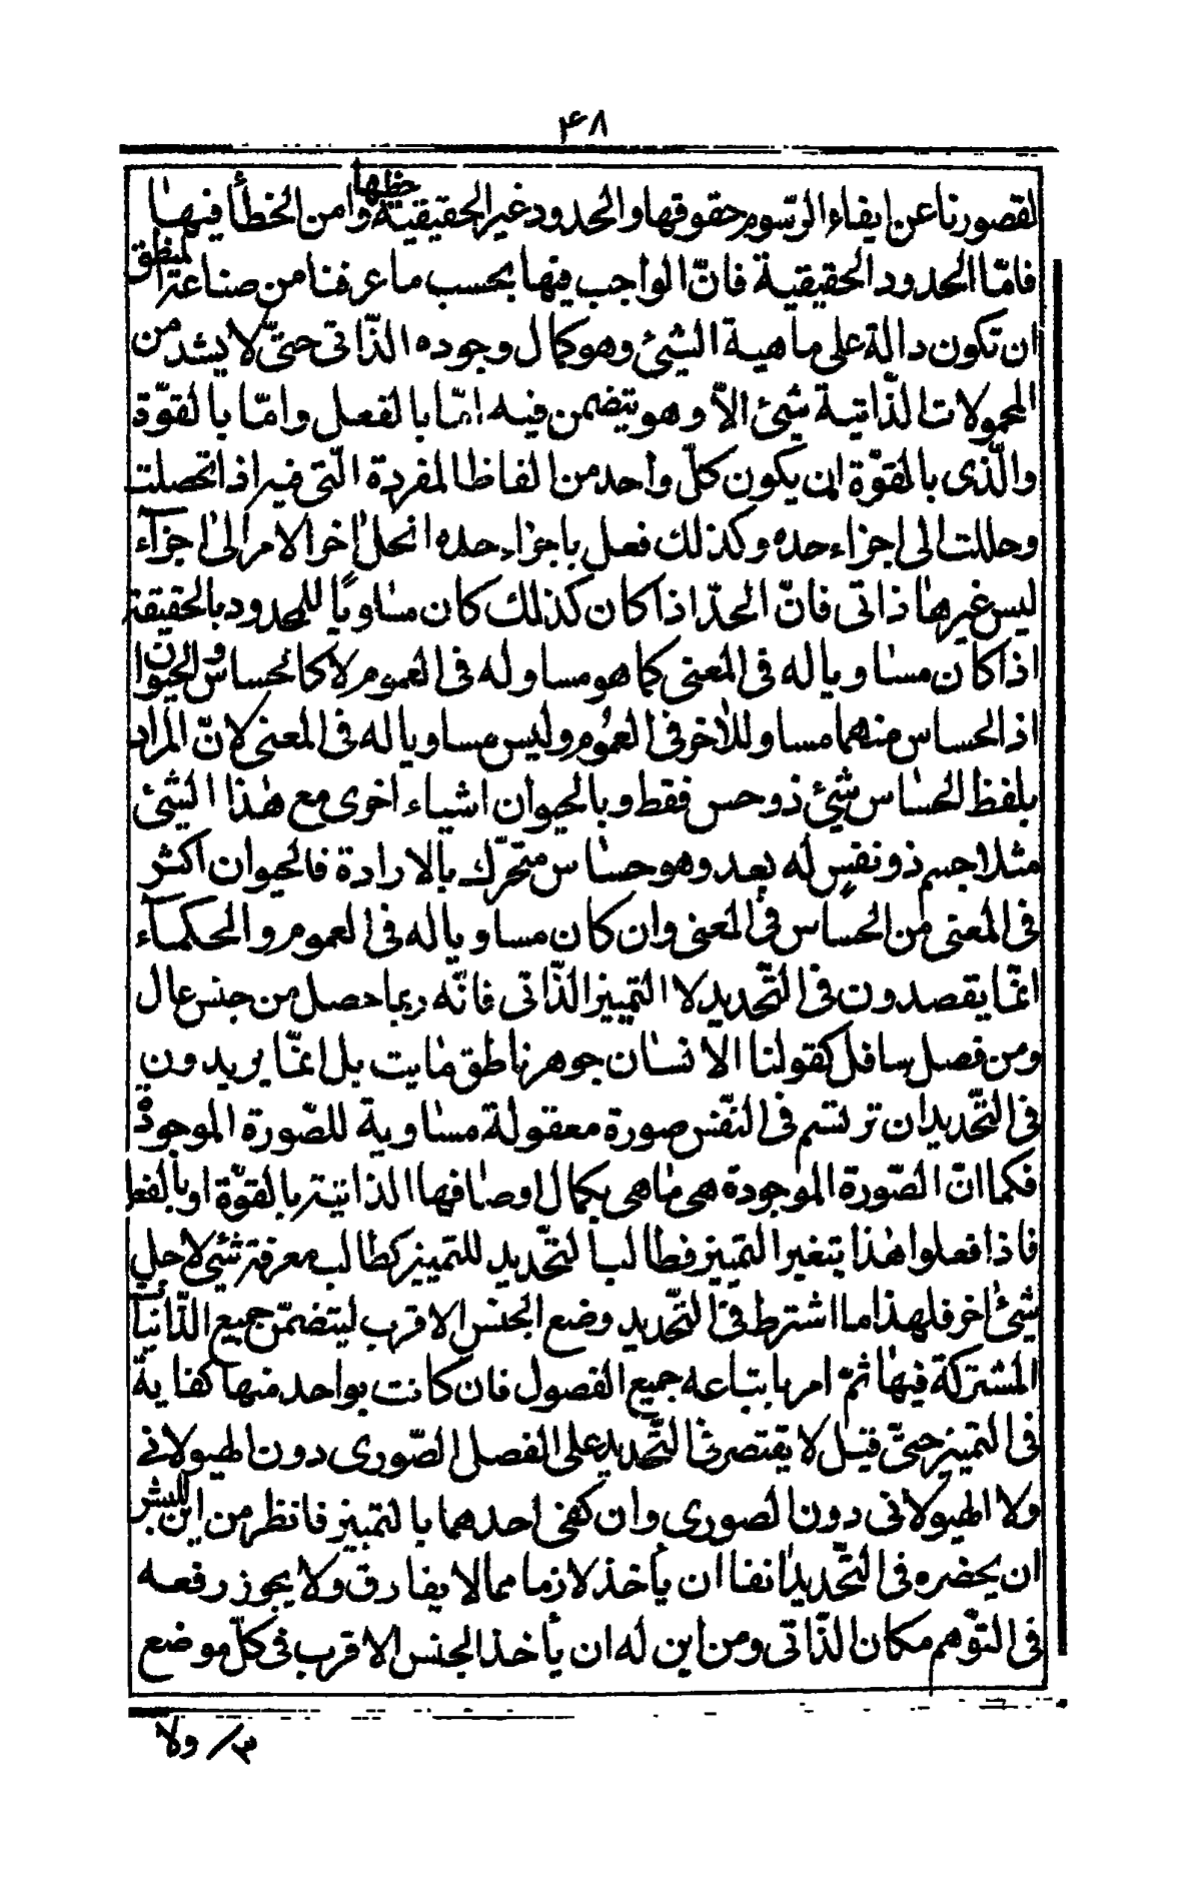 ۴۸
لقصورنا عن ايفاء الرّسوم حقوقها و الحدود غير الحقيقيّة حظها و امن الخطأ فيها
فامّا الحدود الحقيقية فانّ الواجب فيها بحسب ما عرفنا من صناعة المنطق
ان تكون دالة على ماهية الشيئ وهو كمال وجوده الذّاتى حتىّ لا يشد من
المحمولات الذّاتية شيئ الاّ وهو يتضمن فيه امّا بالفعل وامّا بالقوّة
والّذى بالقوّة ان يكون كلّ واحد من الفاظ المفردة الّتى فيه اذا تحصلت
وحللت الى اجزاء حده وكذلك فعل باجزاء حده انحل اخر الامر الى اجزآء
ليس غيرها ذاتى فانّ الحدّ اذا كان كذلك كان مساويًا للمحدود بالحقيقة
اذا كان مساويا له فى المعنى كما هو مساو له فى العموم لا كالحساس و الحيوان
اذ الحساس منهما مساو للاخر فى العموم وليس مساويا له فى المعنى لانّ المراد
بلفظ الحساس شيئ ذو حس فقط وبالحيوان اشياء اخرى مع هذا الشئ
مثلا جسم ذو نفس له بعد وهو حساس متحرّك بالارادة فالحيوان اكثر
فى المعنى من الحساس فى المعنى وان كان مساويا له فى العموم والحكمآء
انمّا يقصدون فى التّحديد لا التمييز الذّاتى فانّه ربما حصل من جنس عال
ومن فصل سافل كقولنا الانسان جوهر ناطق مايت بل انمّا يريدون
فى التّحديد ان ترتسم فى النّفس صورة معقولة مساوية للصّورة الموجودة
فكما انّ الصّورة الموجودة هى ماهى بكمال اوصافها الذاتية بالقوّة او بالفعل
فاذا فعلوا هذا يتغير التمييز فطالب التّحديد للتمييز كطالب معرفة شئ لاجل
شئ اخر فلهذا ما اشترط فى التّحديد وضع الجنس الاقرب ليتضمّن جميع الذّاتيات
المشتركة فيها ثمّ امر باتباعه جميع الفصول فان كانت بواحد منها كفاية
فى التمييز حتىّ قيل لا يقتصر فى التّحديد على الفصل الصّورى دون الهيولانى
ولا الهيولانى دون الصورى وان كفى احدهما بالتمييز فانظر من اين للبشر
ان يحضره فى التّحديد انفا ان يأخذ لازما مما لا يفارق ولا يجوز رفعه
فى التوّهم مكان الذّاتى ومن اين له ان يأخذ الجنس الاقرب فى كلّ موضع
۳/ ولا